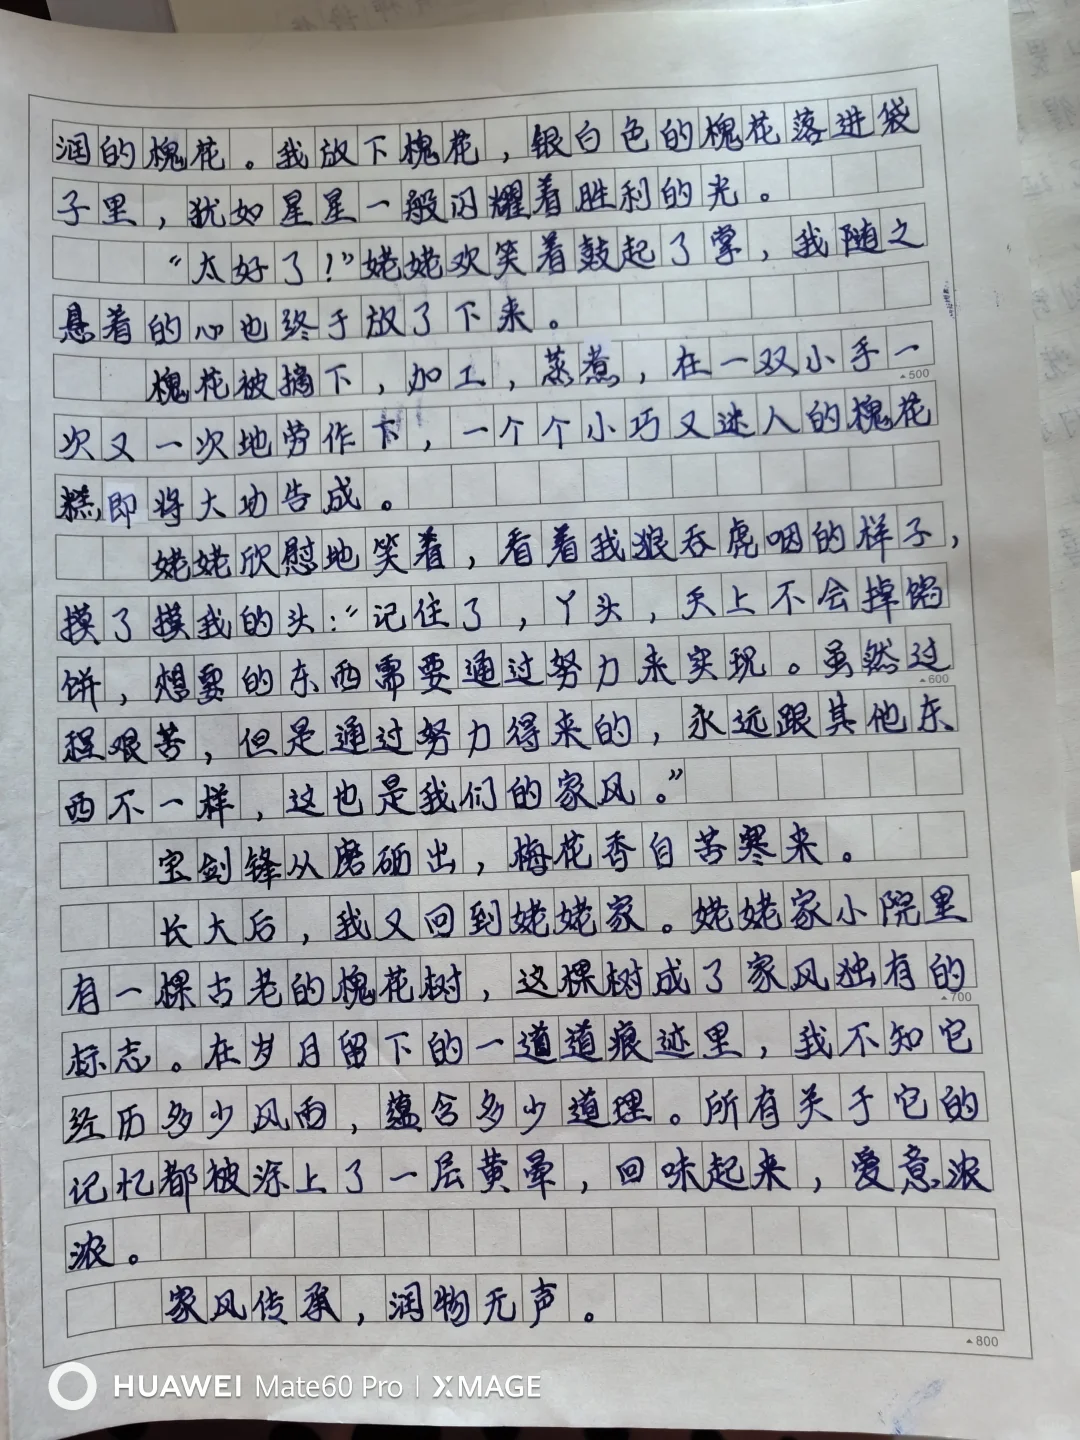 润的槐花。我放下槐花，银白色的槐花落进袋
子里，犹如星星一般闪耀着胜利的光。
“太好了！”姥姥欢笑着鼓起了掌，我随之
悬着的心也终于放了下来。
槐花被摘下，加工，蒸煮，在一双小手一
▲500
次又一次地劳作下，一个个小巧又迷人的槐花
糕,即将大功告成。
姥姥欣慰地笑着，看着我狼吞虎咽的样子，
摸了摸我的头：“记住了，丫头，天上不会掉馅
饼，想要的东西需要通过努力来实现。虽然过
▲600
程艰苦，但是通过努力得来的，永远跟其他东
西不一样，这也是我们的家风。”
宝剑锋从磨砺出，梅花香自苦寒来。
长大后，我又回到姥姥家。姥姥家小院里
有一棵古老的槐花树，这棵树成了家风独有的
▲700
标志。在岁月留下的一道道痕迹里，我不知它
经历多少风雨，蕴含多少道理。所有关于它的
记忆都被涂上了一层黄晕，回味起来，爱意浓
浓。
家风传承，润物无声。
▲800
HUAWEI Mate60 Pro | XMAGE